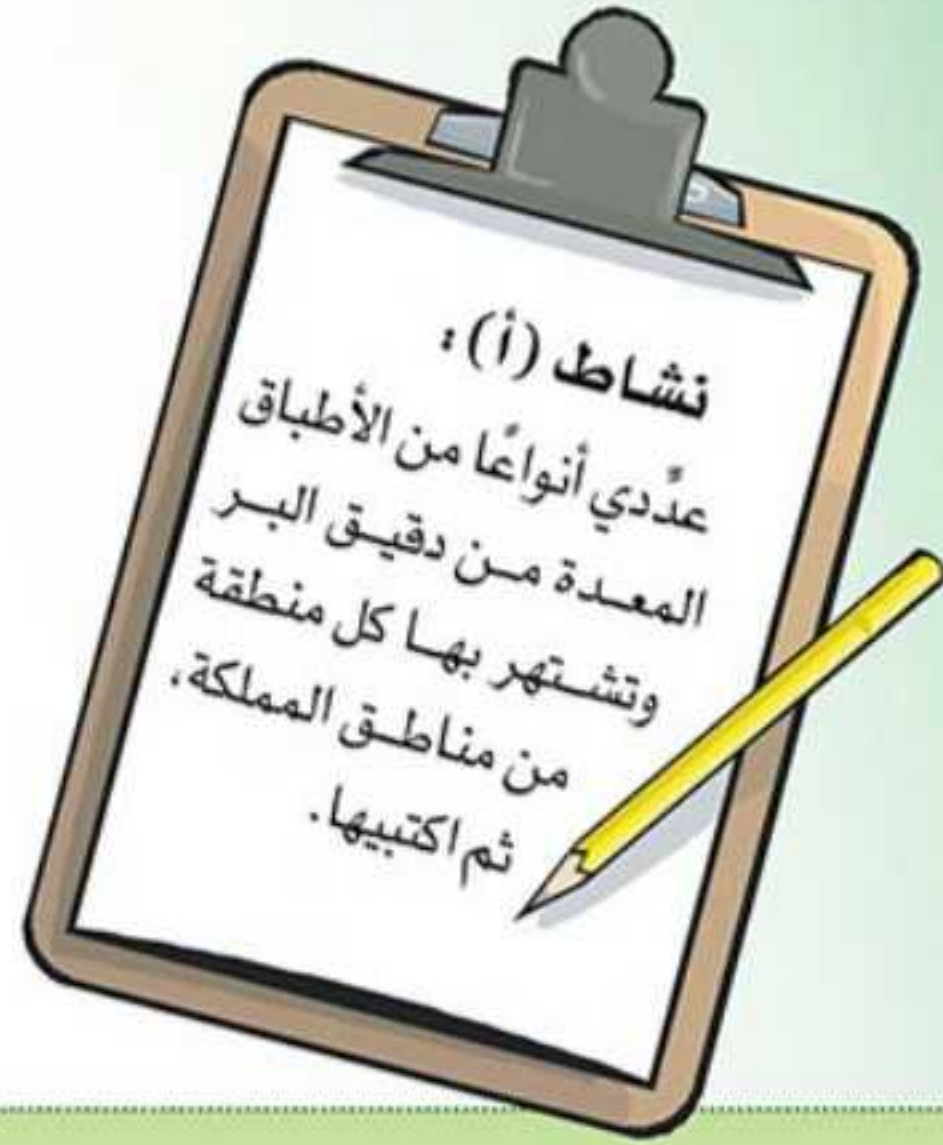 نشاط (أ) :
عدِّدي أنواعًا من الأطباق
المعدة من دقيق البر
وتشتهر بها كل منطقة
من مناطق المملكة،
ثم اكتبيها.